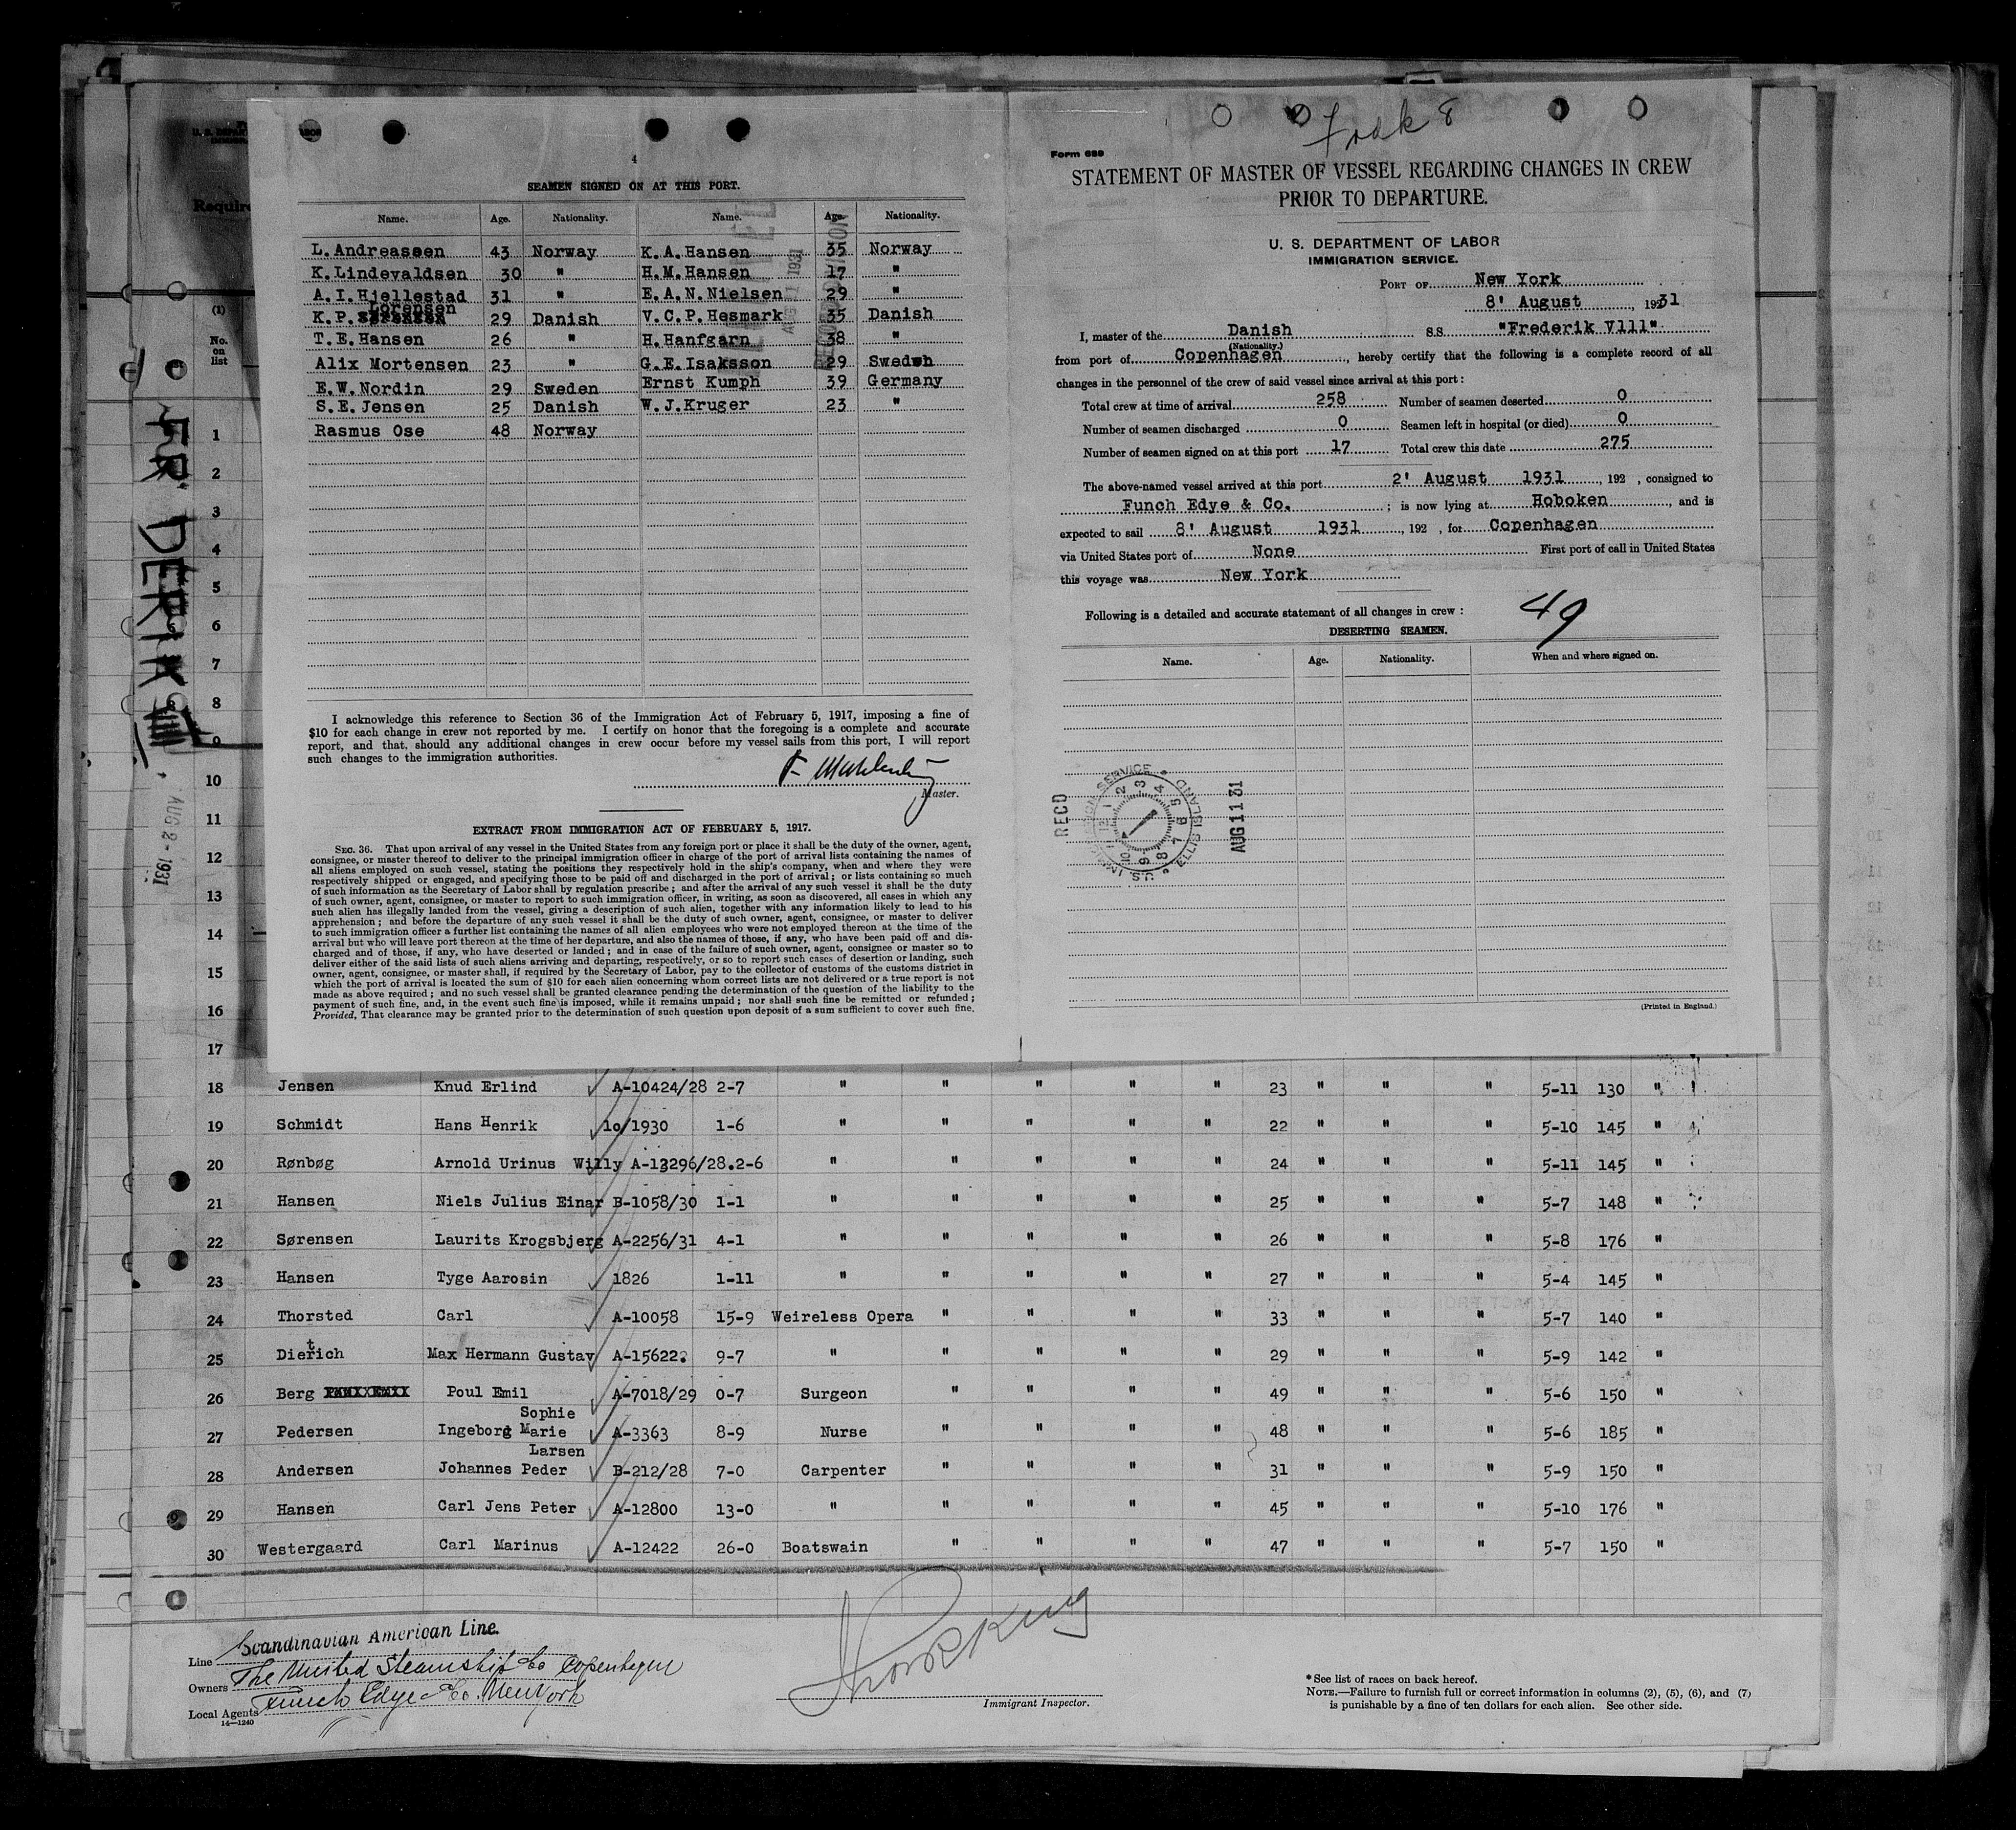 4
SEAMEN SIGNED ON AT THIS PORT.
Name. Age. Nationality. Name. Age. Nationality.
L. Andreassen 43 Norway K. A. Hansen 35 Norway
K. Lindevaldsen 30 " H. M. Hansen 17 "
A. I. Hjellestad 31 " E. A. N. Nielsen 29 "
Lorensen
K. P. 29 Danish V. C. P. Hesmark 35 Danish
T. E. Hansen 26 " H. Hanfgarn 38 "
Alix Mortensen 23 " G. E. Isaksson 29 Swedsh
E. W. Nordin 29 Sweden Ernst Kumph 39 Germany
S. E. Jensen 25 Danish W. J. Kruger 23 "
Rasmus Ose 48 Norway
I acknowledge this reference to Section 36 of the Immigration Act of February 5, 1917, imposing a fine of
$10 for each change in crew not reported by me. I certify on honor that the foregoing is a complete and accurate
report, and that, should any additional changes in crew occur before my vessel sails from this port, I will report
such changes to the immigration authorities.
Master.
EXTRACT FROM IMMIGRATION ACT OF FEBRUARY 5, 1917.
SEC. 36. That upon arrival of any vessel in the United States from any foreign port or place it shall be the duty of the owner, agent,
consignee, or master thereof to deliver to the principal immigration officer in charge of the port of arrival lists containing the names of
all aliens employed on such vessel, stating the positions they respectively hold in the ship's company, when and where they were
respectively shipped or engaged, and specifying those to be paid off and discharged in the port of arrival; or lists containing so much
of such information as the Secretary of Labor shall by regulation prescribe; and after the arrival of any such vessel it shall be the duty
of such owner, agent, consignee, or master to report to such immigration officer, in writing, as soon as discovered, all cases in which any
such alien has illegally landed from the vessel, giving a description of such alien, together with any information likely to lead to his
apprehension; and before the departure of any such vessel it shall be the duty of such owner, agent, consignee, or master to deliver
to such immigration officer a further list containing the names of all alien employees who were not employed thereon at the time of the
arrival but who will leave port thereon at the time of her departure, and also the names of those, if any, who have been paid off and dis-
charged and of those, if any, who have deserted or landed; and in case of the failure of such owner, agent, consignee or master so to
deliver either of the said lists of such aliens arriving and departing, respectively, or so to report such cases of desertion or landing, such
owner, agent, consignee, or master shall, if required by the Secretary of Labor, pay to the collector of customs of the customs district in
which the port of arrival is located the sum of $10 for each alien concerning whom correct lists are not delivered or a true report is not
made as above required; and no such vessel shall be granted clearance pending the determination of the question of the liability to the
payment of such fine, and, in the event such fine is imposed, while it remains unpaid; nor shall such fine be remitted or refunded;
Provided, That clearance may be granted prior to the determination of such question upon deposit of a sum sufficient to cover such fine.
Form 689
STATEMENT OF MASTER OF VESSEL REGARDING CHANGES IN CREW
PRIOR TO DEPARTURE.
U. S. DEPARTMENT OF LABOR
IMMIGRATION SERVICE.
PORT OF New York
8' August , 1931
I, master of the Danish S.S. "Frederik Vlll"
(Nationality.)
from port of Copenhagen , hereby certify that the following is a complete record of all
changes in the personnel of the crew of said vessel since arrival at this port:
Total crew at time of arrival 258 Number of seamen deserted 0
Number of seamen discharged 0 Seamen left in hospital (or died) 0
Number of seamen signed on at this port 17 Total crew this date 275
The above-named vessel arrived at this port 2' August 1931 , 192 , consigned to
Funch Edye & Co. ; is now lying at Hoboken , and is
expected to sail 8' August 1931 , 192 , for Copenhagen
via United States port of None First port of call in United States
this voyage was New York
Following is a detailed and accurate statement of all changes in crew: 49
DESERTING SEAMEN.
Name. Age. Nationality. When and where signed on.
RECD
U.S. IMMIGRATION SERVICE ELLIS ISLAND
AUG 11 31
(Printed in England.)
Require
(1)
No.
on
list
FR'DERIK VIII
AUG 2 - 1931
1
2
3
4
5
6
7
8
9
10
11
12
13
14
15
16
17
18 Jensen Knud Erlind A-10424/28 2-7 " " " " " 23 " " " 5-11 130 "
19 Schmidt Hans Henrik 10/1930 1-6 " " " " " 22 " " " 5-10 145 "
20 Rønbøg Arnold Urinus Willy A-13296/28. 2-6 " " " " " 24 " " " 5-11 145 "
21 Hansen Niels Julius Einar B-1058/30 1-1 " " " " " 25 " " " 5-7 148 "
22 Sørensen Laurits Krogsbjerg A-2256/31 4-1 " " " " " 26 " " " 5-8 176 "
23 Hansen Tyge Aarosin 1826 1-11 " " " " " 27 " " " 5-4 145 "
24 Thorsted Carl A-10058 15-9 Weireless Opera " " " " 33 " " " 5-7 140 "
25 Dietrich Max Hermann Gustav A-15622. 9-7 " " " " " 29 " " " 5-9 142 "
26 Berg Poul Emil A-7018/29 0-7 Surgeon " " " " 49 " " " 5-6 150 "
Sophie
27 Pedersen Ingeborg Marie A-3363 8-9 Nurse " " " " 48 " " " 5-6 185 "
Larsen
28 Andersen Johannes Peder B-212/28 7-0 Carpenter " " " " 31 " " " 5-9 150 "
29 Hansen Carl Jens Peter A-12800 13-0 " " " " " 45 " " " 5-10 176 "
30 Westergaard Carl Marinus A-12422 26-0 Boatswain " " " " 47 " " " 5-7 150 "
Line Scandinavian American Line.
Owners The United Steamship Co Copenhagen
Local Agents Funch Edye & Co. New York
14—1240
Immigrant Inspector.
* See list of races on back hereof.
NOTE.—Failure to furnish full or correct information in columns (2), (5), (6), and (7)
is punishable by a fine of ten dollars for each alien. See other side.